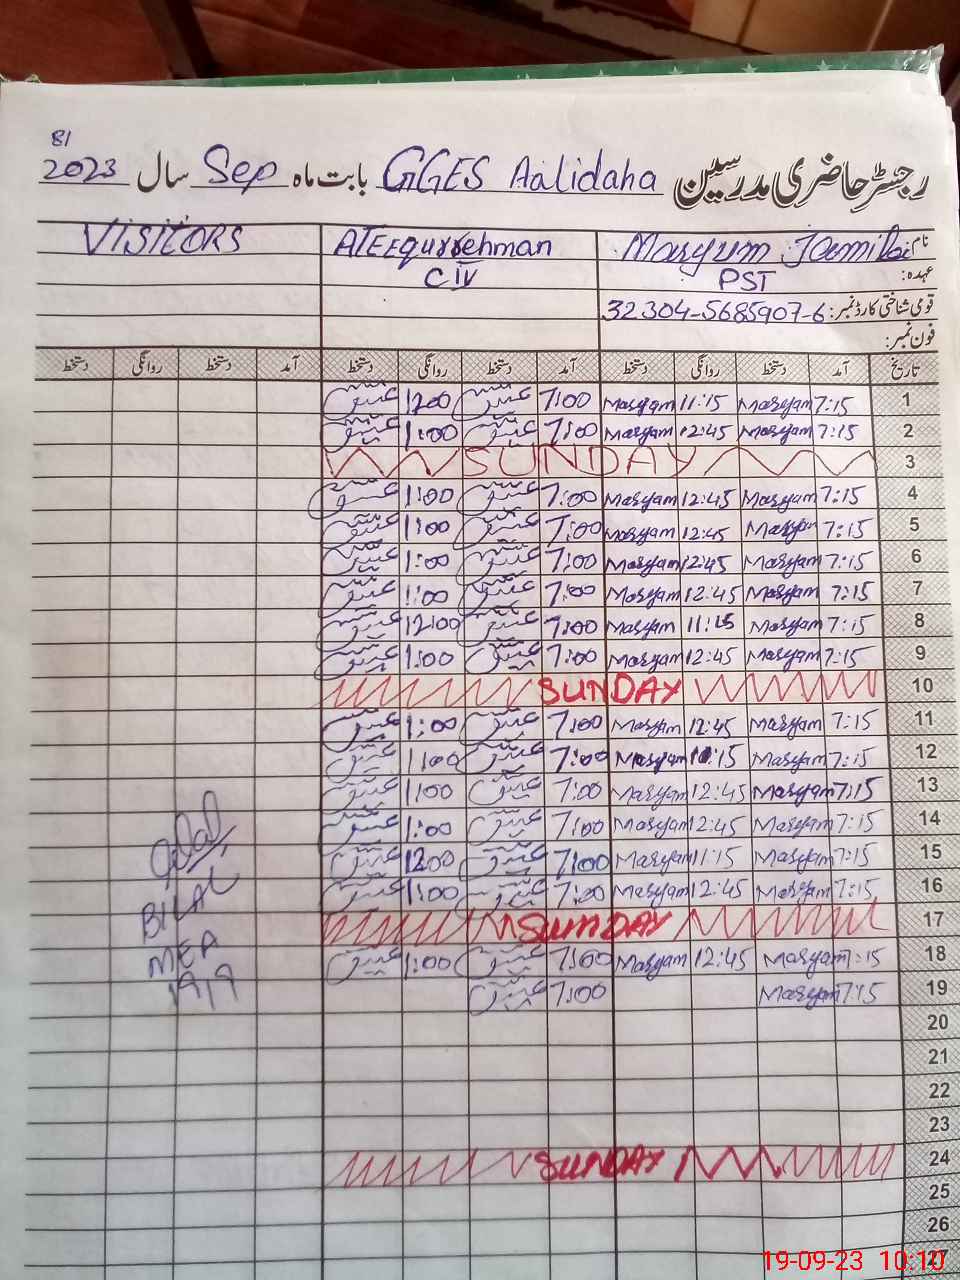 81
رجسٹر حاضری مدرسین GGES Aalidaha بابت ماہ Sep سال 2023
نام Maryum Jamila ATEEqurrehman VISITORS
عہدہ: PST CIV
قومی شناختی کارڈ نمبر: 32304-5685907-6
فون نمبر:
تاریخ آمد دستخط روانگی دستخط آمد دستخط روانگی دستخط آمد دستخط روانگی دستخط
1 7:15 Maryam 11:15 Maryam 7:00 عتیق 12:00 عتیق
2 7:15 Maryam 12:45 Maryam 7:00 عتیق 1:00 عتیق
3 SUNDAY
4 7:15 Maryam 12:45 Maryam 7:00 عتیق 1:00 عتیق
5 7:15 Maryam 12:45 Maryam 7:00 عتیق 1:00 عتیق
6 7:15 Maryam 12:45 Maryam 7:00 عتیق 1:00 عتیق
7 7:15 Maryam 12:45 Maryam 7:00 عتیق 1:00 عتیق
8 7:15 Maryam 11:15 Maryam 7:00 عتیق 12:00 عتیق
9 7:15 Maryam 12:45 Maryam 7:00 عتیق 1:00 عتیق
10 SUNDAY
11 7:15 Maryam 12:45 Maryam 7:00 عتیق 1:00 عتیق
12 7:15 Maryam Maryam 7:00 عتیق 1:00 عتیق
13 7:15 Maryam 12:45 Maryam 7:00 عتیق 1:00 عتیق
14 7:15 Maryam 12:45 Maryam 7:00 عتیق 1:00 عتیق
15 7:15 Maryam 11:15 Maryam 7:00 عتیق 12:00 عتیق
16 7:15 Maryam 12:45 Maryam 7:00 عتیق 1:00 عتیق
17 SUNDAY
18 7:15 Maryam 12:45 Maryam 7:00 عتیق 1:00 عتیق
19 7:15 Maryam 7:00 عتیق
BILAL
MEA
19/9
20
21
22
23
24 SUNDAY
25
26
27
19-09-23 10:10